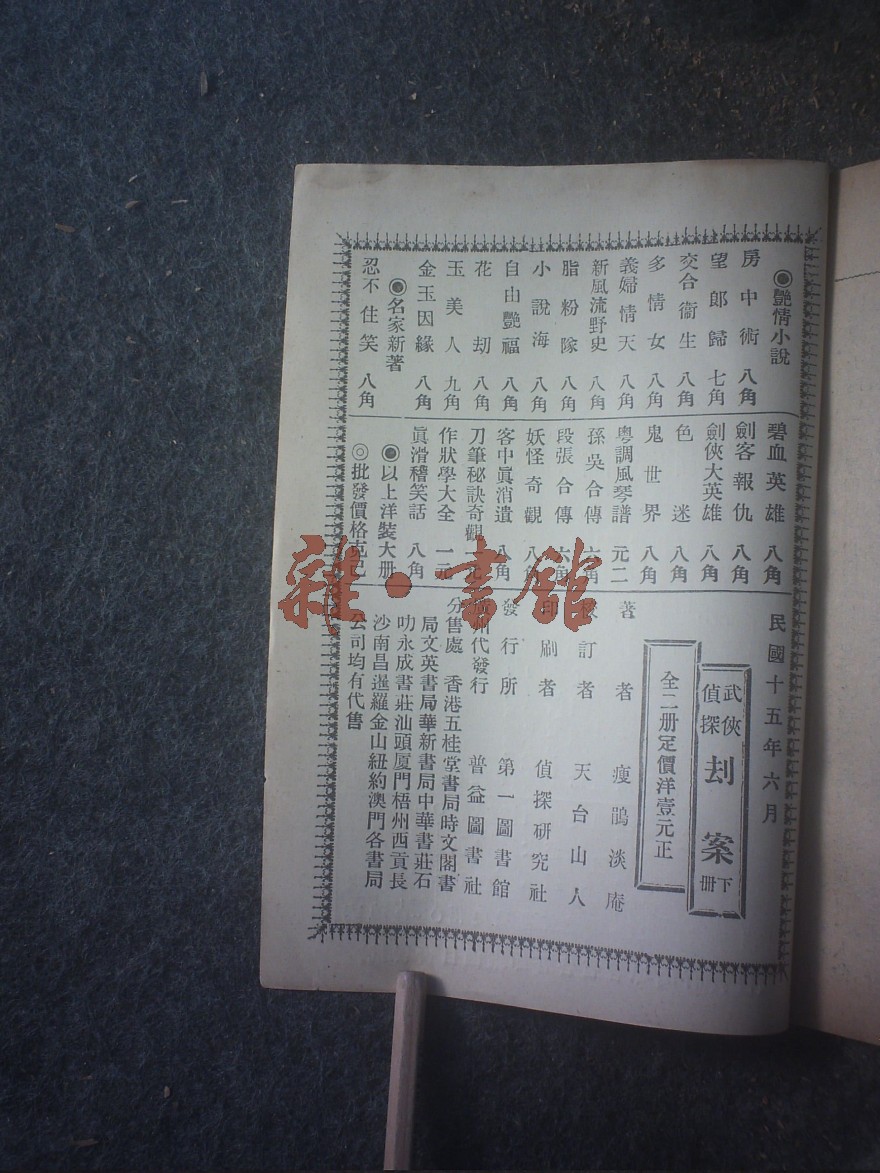 ◉艷情小說
房中術 八角
望郎歸 七角
交合衞生 八角
多情女 八角
義婦情天 八角
新風流野史 八角
脂粉隊 八角
小說海 八角
自由艷福 八角
花刼 八角
玉美人 九角
金玉因緣 八角
◉名家新著
忍不住笑 八角
碧血英雄 八角
劍客報仇 八角
劍俠大英雄 八角
色迷 八角
鬼世界 八角
粵調風琴譜 元二
孫吳合傳 六角
段張合傳 六角
妖怪奇觀 八角
客中眞消遣 八角
刀筆秘訣奇觀
作狀學大全 一元
眞滑稽笑話 八角
◉以上洋裝大册
◎批發價格克己
民國十五年六月
武俠偵探 刦案 下册
全二册定價洋壹元正
著者 瘦鵑淡庵
訂者 天台山人
印刷者 偵探硏究社
發行所 第一圖書館
州代發行 普益圖書社
分售處 香港五桂堂書局時文閣書
局文英書局華新書局中華書莊石
叻永成書莊汕頭厦門梧州西貢長
沙南昌暹羅金山紐約澳門各書局
公司均有代售
雜·書館